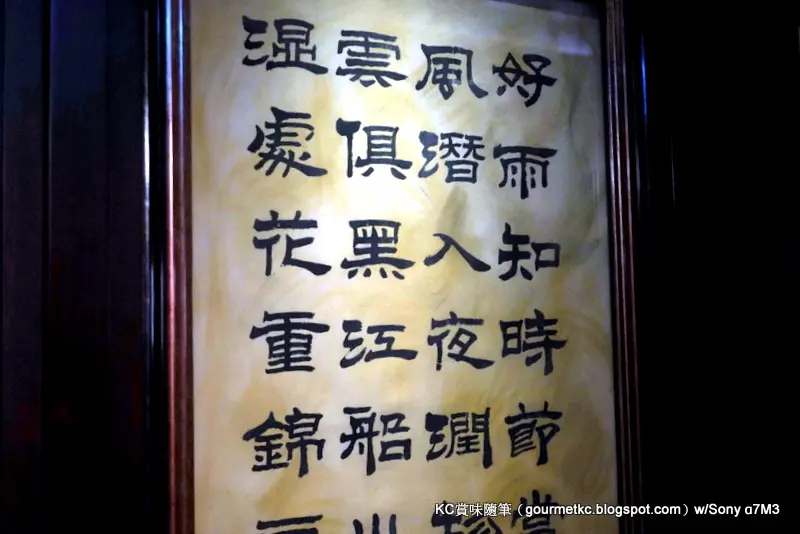 好雨知時節當
風潛入夜潤物
雲俱黑江船
湿處花重錦
KC賞味隨筆（gourmetkc.blogspot.com）w/Sony α7M3